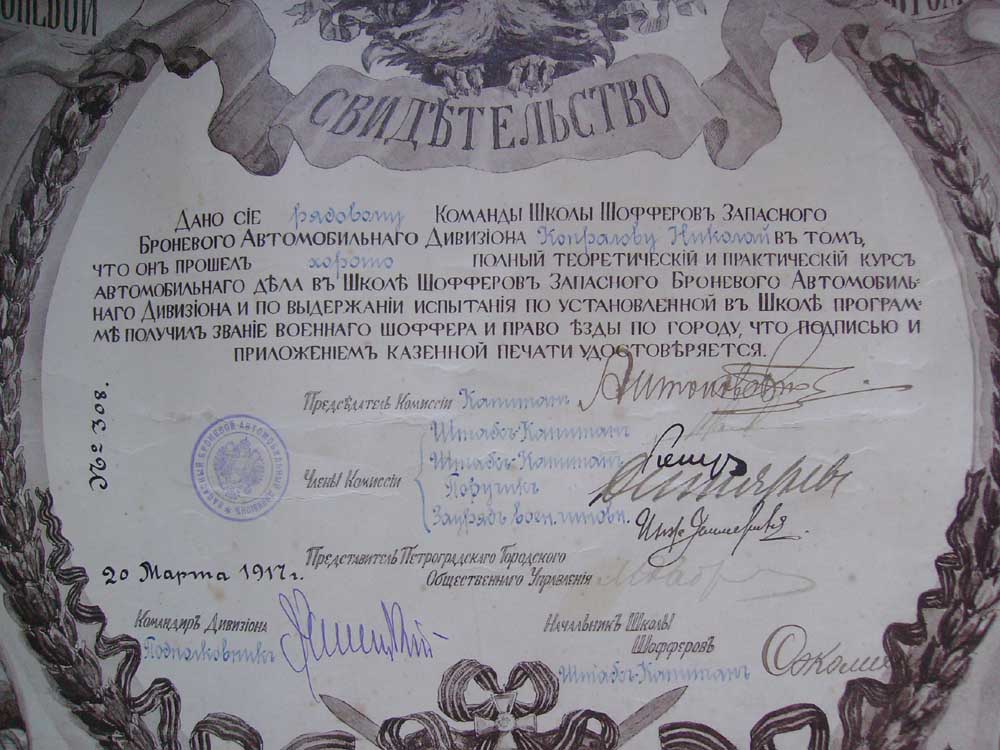 СВИДѢТЕЛЬСТВО
Дано сіе рядовому Команды Школы Шофферовъ Запасного
Броневого Автомобильнаго Дивизіона Копралову Николай въ томъ,
что онъ прошелъ хорошо полный теоретическій и практическій курсъ
автомобильнаго дѣла въ Школѣ Шофферовъ Запасного Броневого Автомобиль-
наго Дивизіона и по выдержаніи испытанія по установленной въ Школѣ програм-
мѣ получилъ званіе военнаго шоффера и право ѣзды по городу, что подписью и
приложеніемъ казенной печати удостовѣряется.
№ 2308.
Предсѣдатель Комиссіи Капитанъ
Штабсъ-Капитанъ
Штабсъ-Капитанъ
Члены Комиссіи
Поручикъ
Заурядъ воен. чиновн.
20 Марта 1917 г.
Представитель Петроградскаго Городского
Общественнаго Управленія
Командиръ Дивизіона
Подполковникъ
Начальникъ Школы
Шофферовъ
Штабсъ-Капитанъ